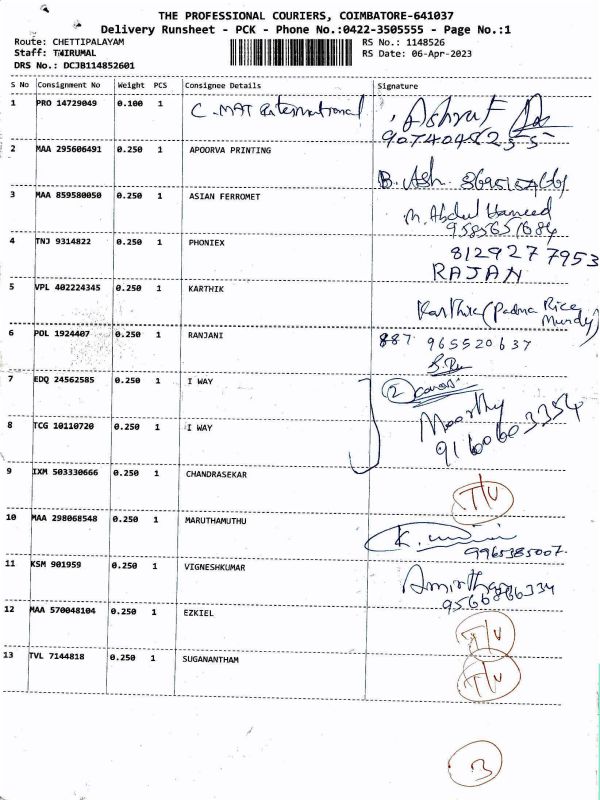 THE PROFESSIONAL COURIERS, COIMBATORE-641037
Delivery Runsheet - PCK - Phone No.:0422-3505555 - Page No.:1
Route: CHETTIPALAYAM RS No.: 1148526
Staff: TWIRUMAL RS Date: 06-Apr-2023
DRS No.: DCJB114852601
S No Consignment No Weight PCS Consignee Details Signature
1 PRO 14729049 0.100 1 C.MAT International Ashraf
2 MAA 295606491 0.250 1 APOORVA PRINTING
B. Ash.
3 MAA 859580050 0.250 1 ASIAN FERROMET
M. Abdul Hameed
9585651684
4 TNJ 9314822 0.250 1 PHONIEX 8129277953
RAJAN
5 VPL 402224345 0.250 1 KARTHIK
Karthik (Padma Rice Mundy)
6 POL 1924407 0.250 1 RANJANI 887 965520637
7 EDQ 24562585 0.250 1 I WAY 2
Moorthy
8 TCG 10110720 0.250 1 I WAY 9160603354
9 IXM 503330666 0.250 1 CHANDRASEKAR
T/V
10 MAA 298068548 0.250 1 MARUTHAMUTHU
9965385007.
11 KSM 901959 0.250 1 VIGNESHKUMAR
12 MAA 570048104 0.250 1 EZKIEL
T/V
13 TVL 7144818 0.250 1 SUGANANTHAM
T/V
3